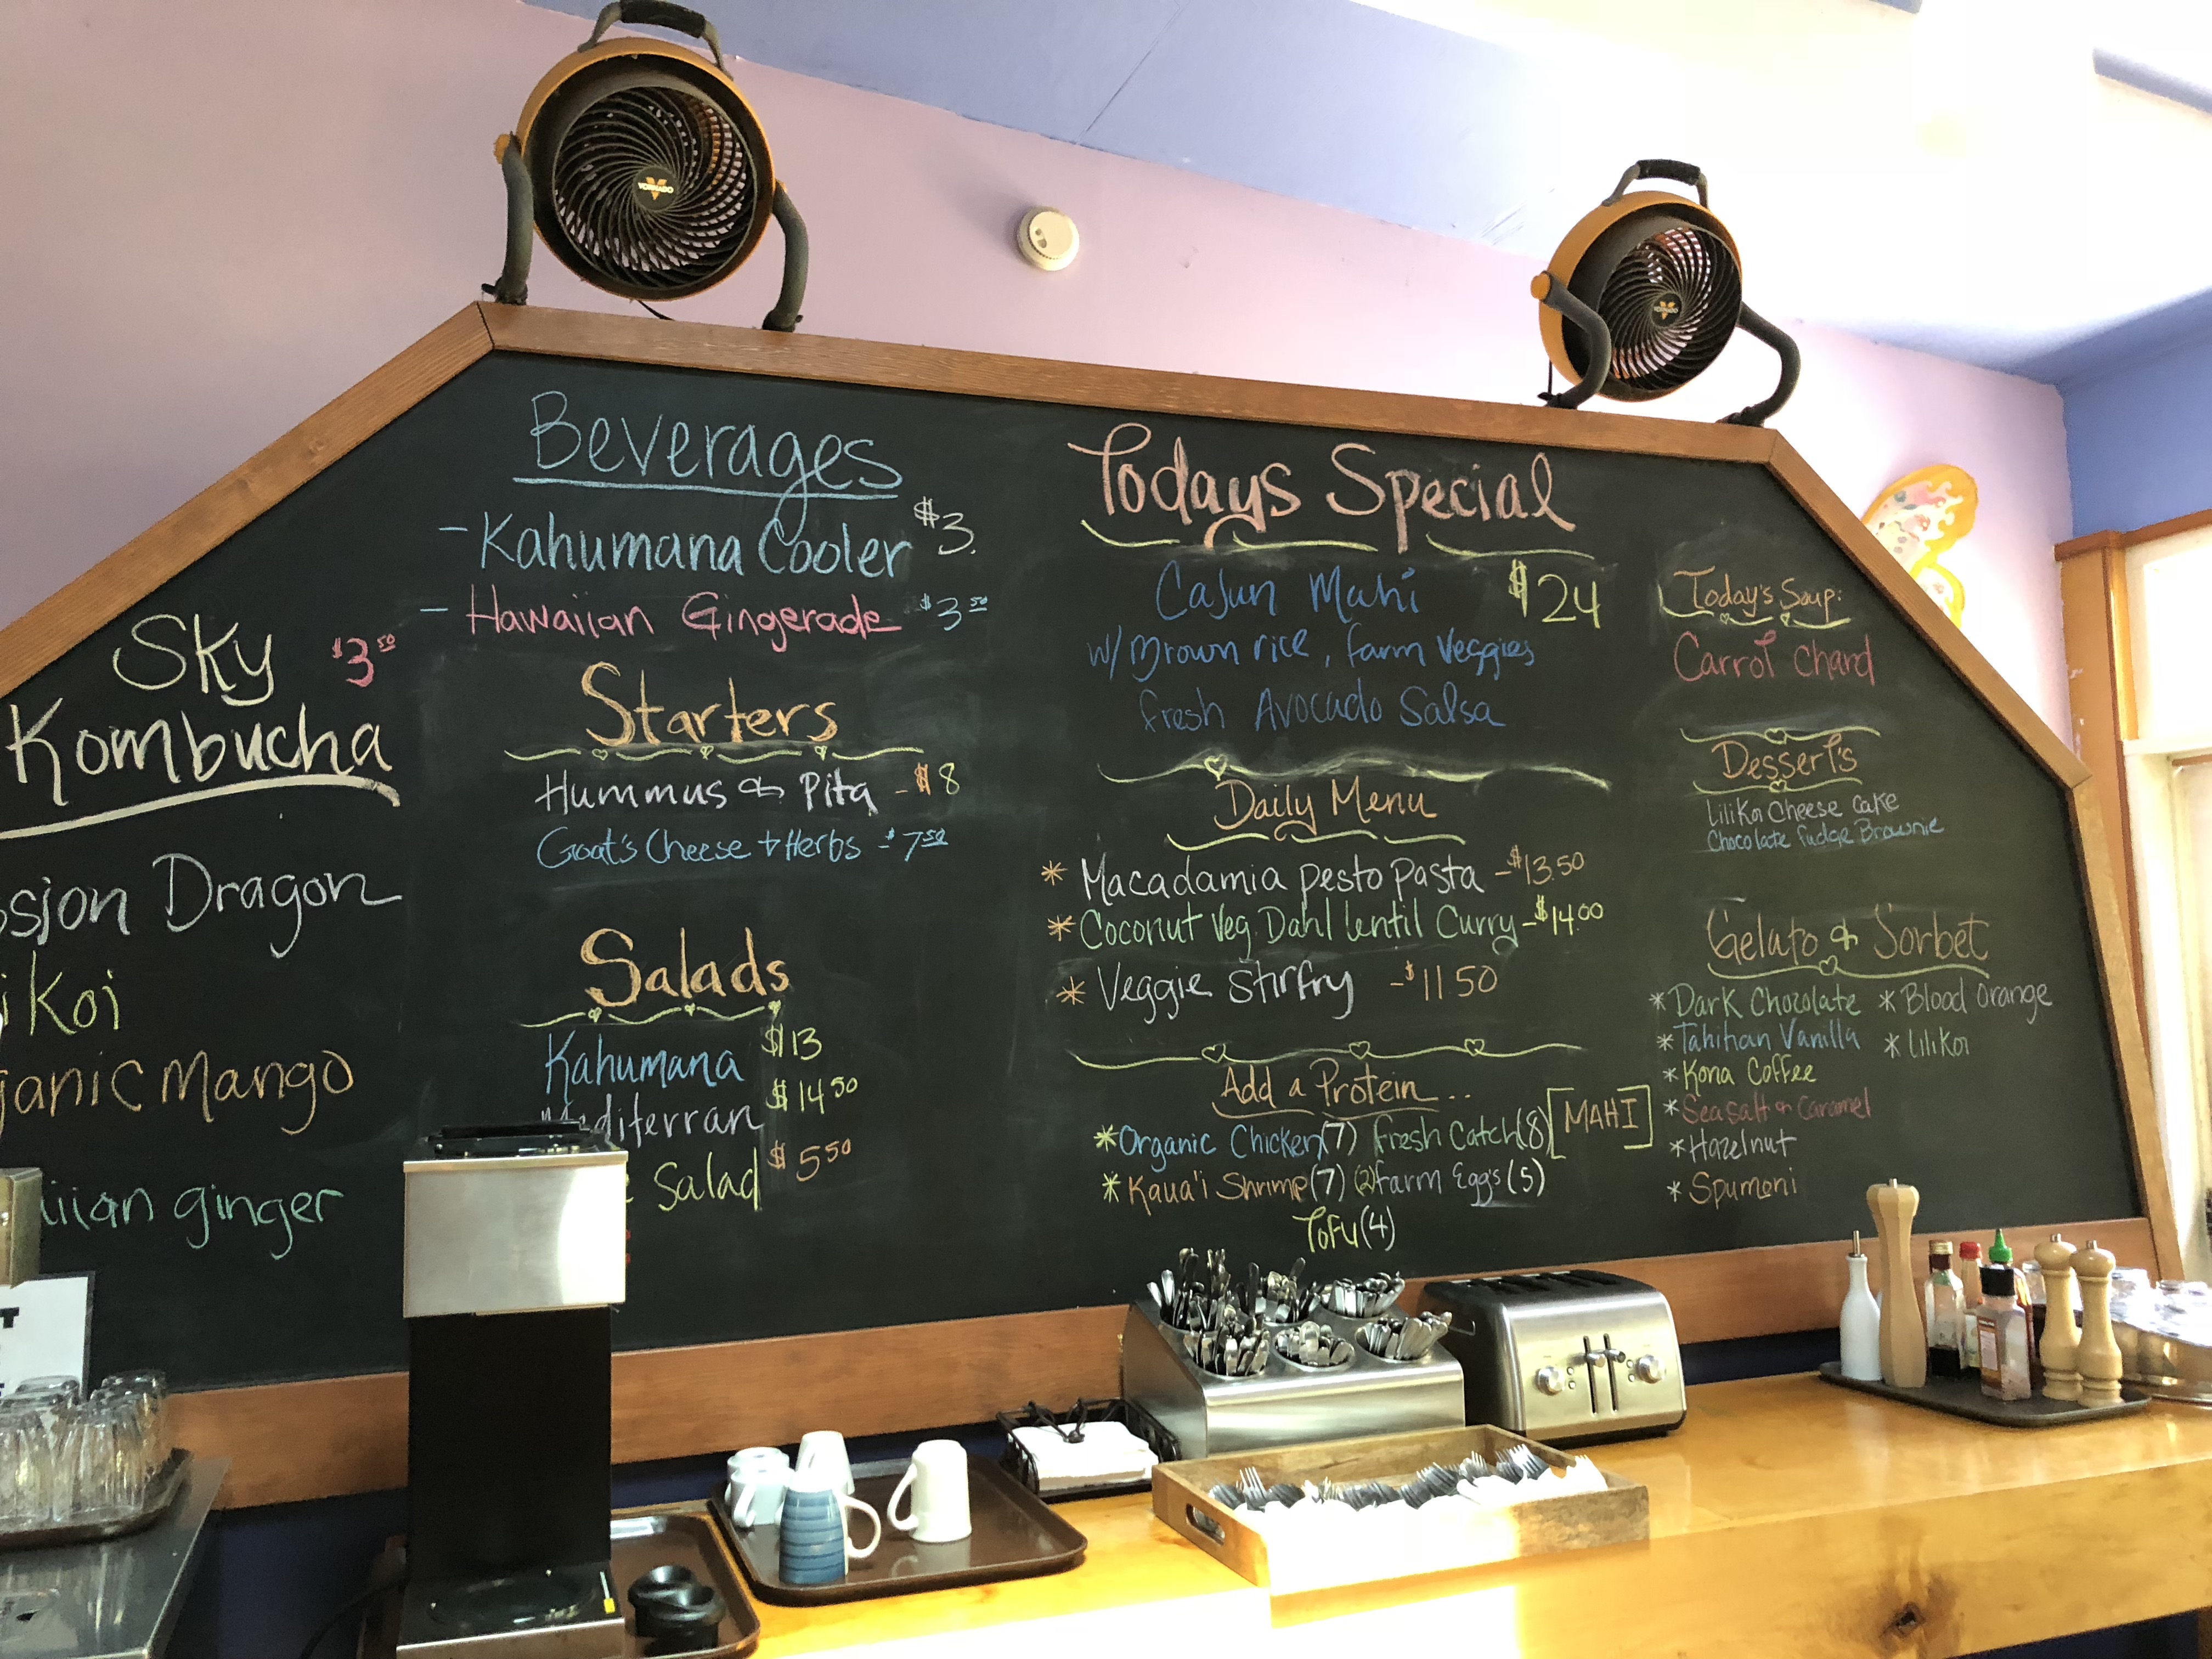 VORNADO
VORNADO
Sky
$3.50
Kombucha
Dragon
Koi
Mango
ginger
Beverages
- Kahumana Cooler $3.
- Hawaiian Gingerade $3.50
Starters
Hummus & Pita - $8
Goat's Cheese + Herbs - $7.50
Salads
Kahumana $13
$14.50
Salad $5.50
Todays Special
Cajun Mahi $24
w/ Brown rice, farm Veggies
fresh Avocado Salsa
Daily Menu
* Macadamia pesto pasta - $13.50
* Coconut Veg. Dahl lentil Curry - $14.00
* Veggie Stirfry - $11.50
Add a Protein...
* Organic Chicken (7) Fresh Catch (8) [MAHI]
* Kaua'i Shrimp (7) (2) farm Eggs (5)
Tofu (4)
Today's Soup:
Carrot chard
Dessert's
Lilikoi Cheese Cake
Chocolate fudge Brownie
Gelato & Sorbet
* Dark Chocolate * Blood Orange
* Tahitian Vanilla * Lilikoi
* Kona Coffee
* Seasalt & Caramel
* Hazelnut
* Spumoni